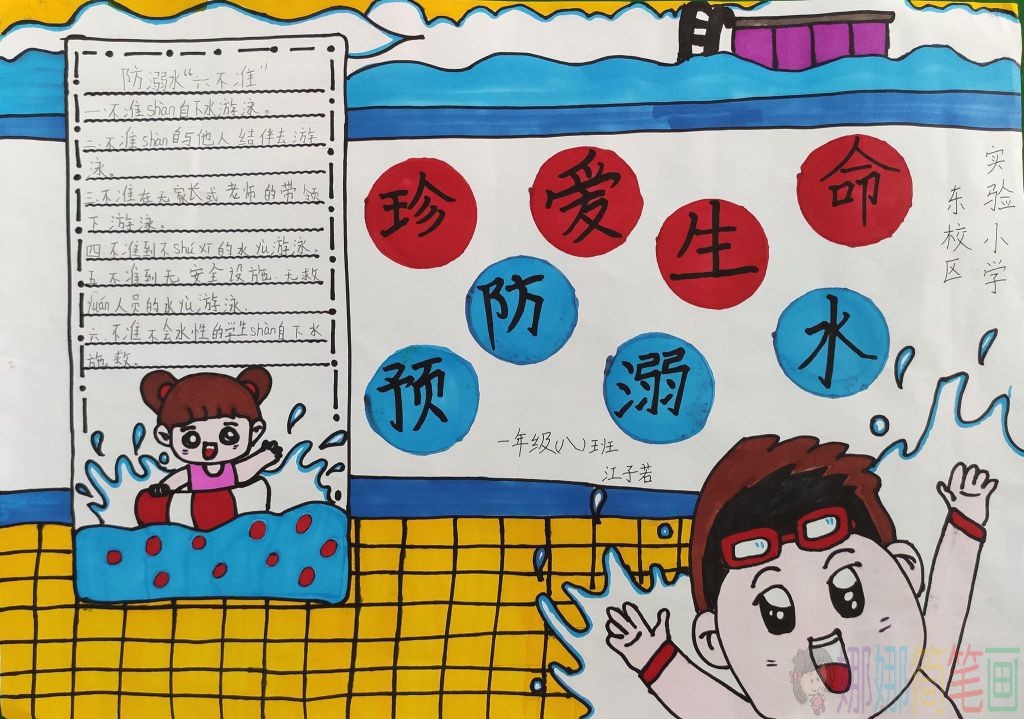 防溺水“六不准”
一.不准shàn自下水游泳。
二.不准shàn自与他人结伴去游
泳。
三.不准在无家长或老师的带领
下游泳。
四.不准到不shú xī的水yù游泳。
五.不准到无安全设施、无救
yuán人员的水yù游泳
六.不准不会水性的学生shàn自下水
施救.
珍爱生命
预防溺水
一年级(八)班
江子若
实验小学
东校区
娜娜简笔画